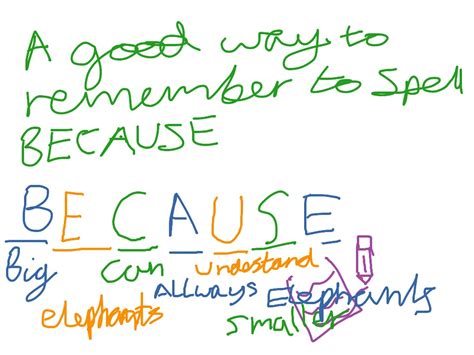 A good way to
remember to spell
BECAUSE
BECAUSE
Big can undestand
elephants ALLways Elephants
smaller